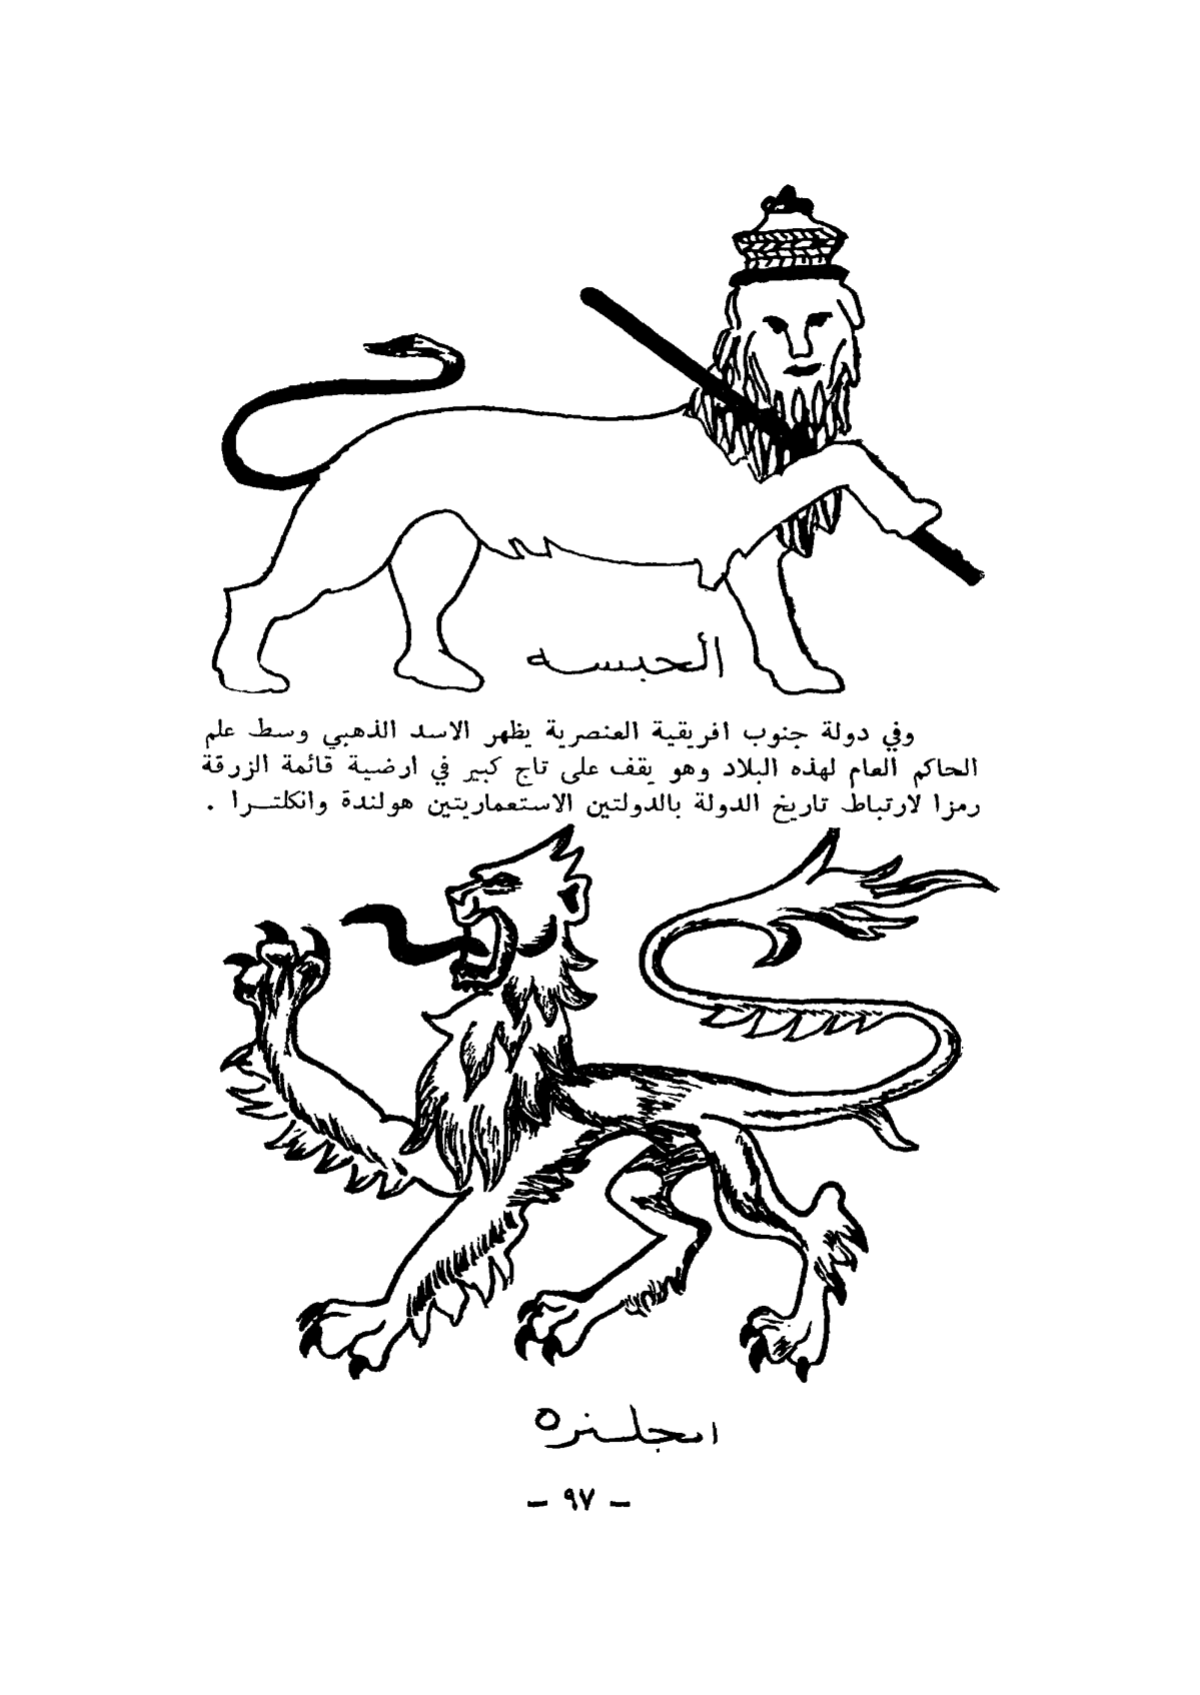 الحبسه
وفي دولة جنوب افريقية العنصرية يظهر الاسد الذهبي وسط علم
الحاكم العام لهذه البلاد وهو يقف على تاج كبير في ارضية قائمة الزرقة
رمزا لارتباط تاريخ الدولة بالدولتين الاستعماريتين هولندة وانكلتـــرا .
انجلتره
– ٩٧ –